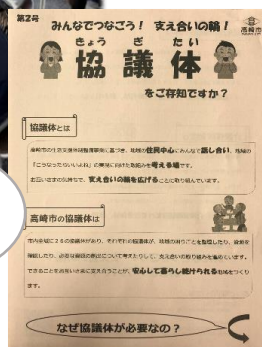 第2号
みんなでつなごう! 支え合いの輪!
高崎市
きょう ぎ たい
協議体
をご存知ですか?
協議体とは
高崎市の生活支援体制整備事業に基づき、地域の住民中心にみんなで話し合い、地域の
「こうなったらいいよね」の実現に向けた取組みを考える場です。
お互いさまの気持ちで、支え合いの輪を広げることに取り組んでいます。
高崎市の協議体は
市内全域に26の協議体があり、それぞれの協議体が、地域の困りごとを整理したり、資源を
確認したり、必要な資源の創出について考えたりして、支え合いの取り組みを進めています。
できることをお互いさまに支え合うことが、安心して暮らし続けられる地域をつくり
ます。
なぜ協議体が必要なの?